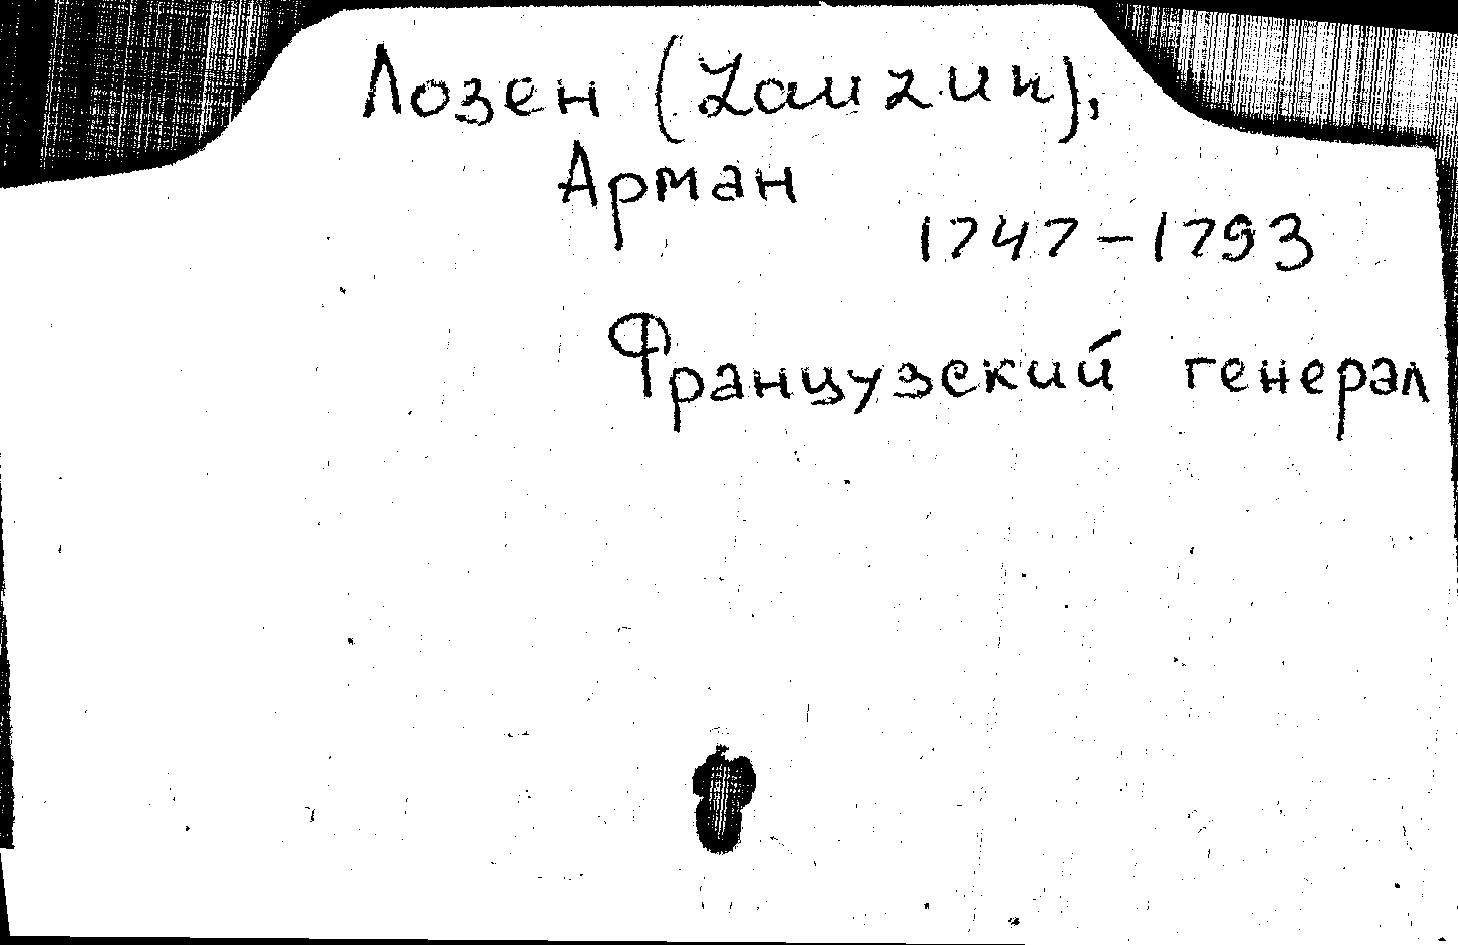 Лозен (Lauzun),
Арман
1747-1793
Французский генерал